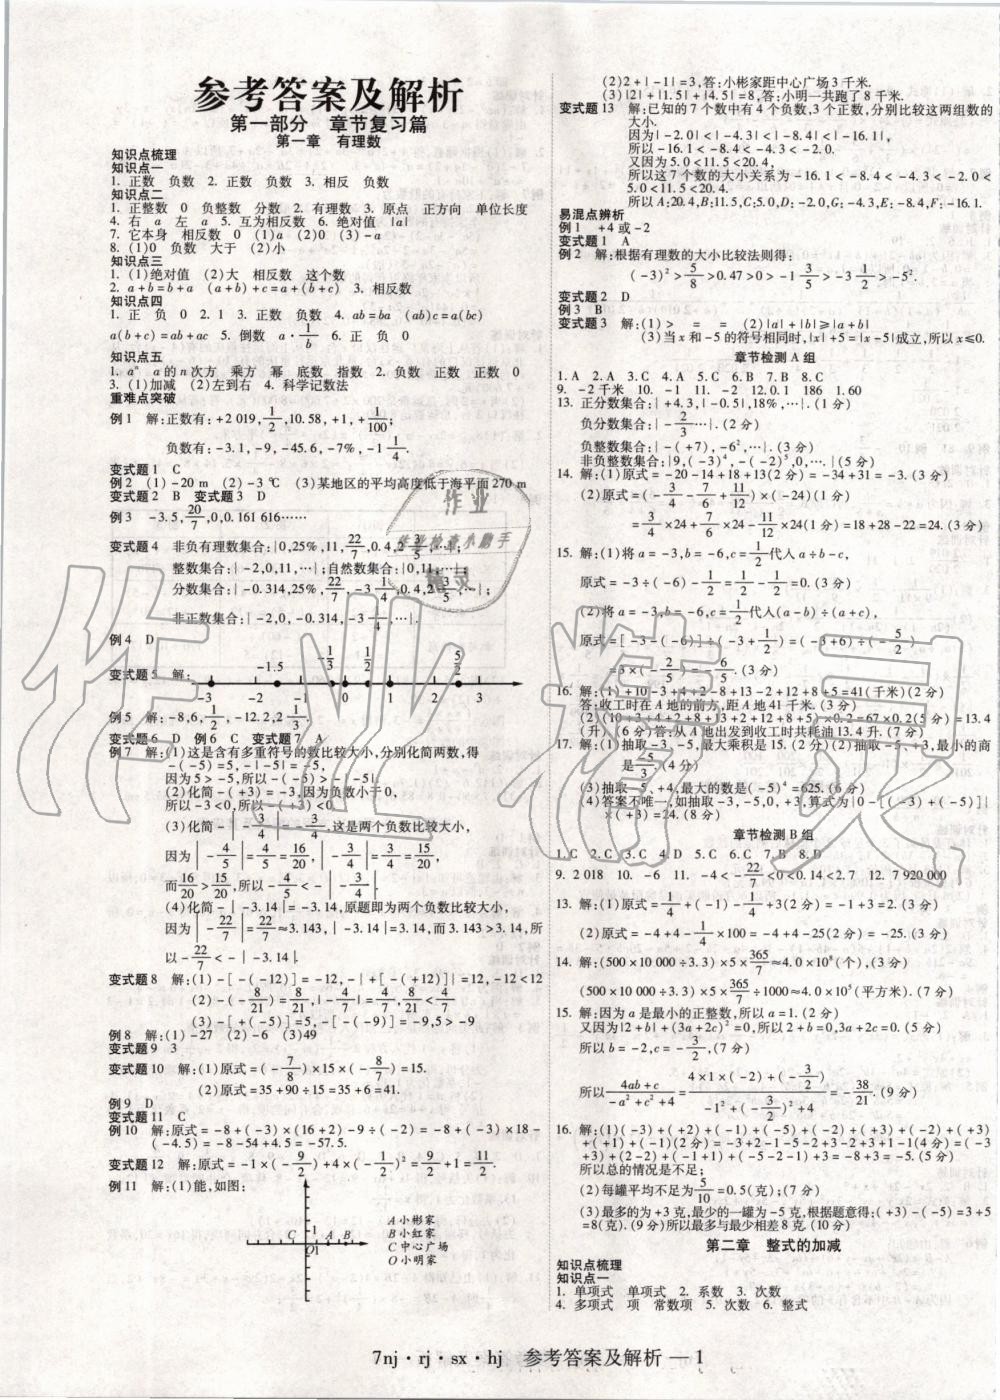 参考答案及解析
第一部分　章节复习篇
第一章　有理数
知识点梳理
知识点一
1. 正数　负数　2. 正数　负数　3. 相反　负数
知识点二
1. 正整数　0　负整数　分数　2. 有理数　3. 原点　正方向　单位长度
4. 右　a　左　a　5. 互为相反数　6. 绝对值　|a|
7. 它本身　相反数　0　(1)a　(2)0　(3)-a
8. (1)0　负数　大于　(2)小
知识点三
1. (1)绝对值　(2)大　相反数　这个数
2. a+b=b+a　(a+b)+c=a+(b+c)　3. 相反数
知识点四
1. 正　负　0　2. 1　3. 正数　负数　4. ab=ba　(ab)c=a(bc)
a(b+c)=ab+ac　5. 倒数　a·1/b　6. 正　负　0
知识点五
1. aⁿ　a的n次方　乘方　幂　底数　指数　2. 负数　正数　正数　0
3. (1)加减　(2)左到右　4. 科学记数法
重难点突破
例1　解:正数有:+2 019,1/2,10.58,+1,+1/100;
负数有:-3.1,-9,-45.6,-7%,-1 1/4.
变式题1　C
例2　(1)-20 m　(2)-3 ℃　(3)某地区的平均高度低于海平面270 m
变式题2　B　变式题3　D
例3　-3.5,20/7,0,0.161 616……
变式题4　非负有理数集合:{0,25%,11,22/7,0.4,2 3/5,…};
整数集合:{-2,0,11,…};自然数集合:{0,11,…};
分数集合:{-0.314,25%,22/7,-3 1/4,0.4,2 3/5,…};
非正数集合:{-2,0,-0.314,-3 1/4,…}.
例4　D
变式题5　解:
-1.5　-1/3　1/2　5/2
-3　-2　-1　0　1　2　3
例5　解:-8,6,1/2,-12.2,2 1/3.
变式题6　D　例6　C　变式题7　A
例7　解:(1)这是含有多重符号的数比较大小,分别化简两数,得
-(-5)=5,-|-5|=-5.
因为5>-5,所以-(-5)>-|-5|
(2)化简-(+3)=-3,因为负数小于0,
所以-3<0,所以-(+3)<0.
(3)化简-|-3/4|=-3/4.这是两个负数比较大小,
因为|-4/5|=4/5=16/20,|-3/4|=3/4=15/20,
而16/20>15/20,所以-4/5<-|-3/4|.
(4)化简-|-3.14|=-3.14,原题即为两个负数比较大小,
因为|-22/7|=22/7≈3.143,|-3.14|=3.14,而3.143>3.14,所
以-22/7<-|-3.14|.
变式题8　解:(1)-[-(-12)]=-12,-|+[-(+12)]|=12,-12<12
(2)-(-8/21)=8/21,|-4/7|=4/7,8/21<4/7
(3)-[+(-5)]=5,-[-(-9)]=-9,5>-9
例8　解:(1)-27　(2)-6　(3)49
变式题9　3
变式题10　解:(1)原式=(-7/8)×15×(-8/7)=15.
(2)原式=35+90÷15=35+6=41.
例9　D
变式题11　C
例10　解:原式=-8+(-3)×(16+2)-9÷(-2)=-8+(-3)×18-
(-4.5)=-8-54+4.5=-57.5.
变式题12　解:原式=-1×(-9/2)+4×(-1/2)²=9/2+1=11/2.
例11　解:(1)能,如图:
C　O　1　1　A　B
A小彬家
B小红家
C中心广场
O小明家
(2)2+|-1|=3,答:小彬家距中心广场3千米.
(3)|2|+|1.5|+|4.5|=8,答:小明一共跑了8千米.
变式题13　解:已知的7个数中有4个负数,3个正数,分别比较这两组数的
大小.
因为|-2.0|<|-4.3|<|-8.4|<|-16.1|,
所以-16.1<-8.4<-4.3<-2.0.
又因为5.0<11.5<20.4,
所以这7个数的大小关系为-16.1<-8.4<-4.3<-2.0<
5.0<11.5<20.4.
所以A:20.4,B:11.5,C:5.0,D:-2.0,G:-4.3,E:-8.4,F:-16.1.
易混点辨析
例1　+4或-2
变式题1　A
例2　解:根据有理数的大小比较法则得:
(-3)²>5/8>0.47>0>-1 3/5>-3 1/2>-5².
变式题2　D
例3　B
变式题3　解:(1)>　=　=　(2)|a|+|b|≥|a+b|
(3)当x和-5的符号相同时,|x|+5=|x-5|成立,所以x≤0.
章节检测A组
1. A　2. A　3. C　4. A　5. C　6. B　7. B　8. C
9. -2千米　10. -1　11. -2　12. 0.1　186　1.60
13. 正分数集合:{+4.3,|-0.5|,18%,…}.(1分)
负分数集合:{-2/3…}.(2分)
负整数集合:{-(+7),-6²,…}.(3分)
非负整数集合:{9,(-3)⁴,-(-2)⁵,0,…}.(5分)
14. 解:(1)原式=-20-14+18+13(2分)=-34+31=-3.(3分)
(2)原式=(-3/4-7/6+11/12)×(-24)(1分)
=3/4×24+7/6×24-11/12×24(1分)=18+28-22=24.(3分)
15. 解:(1)将a=-3,b=-6,c=1/2代入a÷b-c,
原式=-3÷(-6)-1/2=1/2-1/2=0.(3分)
(2)将a=-3,b=-6,c=1/2代入(a-b)÷(a+c),
原式=[-3-(-6)]÷(-3+1/2)=(-3+6)÷(-5/2)
=3×(-2/5)=-6/5.(3分)
16. 解:(1)+10-3+4+2-8+13-2+12+8+5=41(千米)(2分)
答:收工时在A地的前方,距A地41千米.(3分)
(2)(10+3+4+2+8+13+2+12+8+5)×0.2=67×0.2(5分)=13.4
(升)(6分)答:从A地出发到收工时共耗油13.4升.(7分)
17. 解:(1)抽取-3,-5,最大乘积是15.(2分)(2)抽取-5,+3,最小的商
是-5/3.(4分)
(3)抽取-5,+4,最大的数是(-5)⁴=625.(6分)
(4)答案不唯一,如抽取-3,-5,0,+3,算式为{0-[(-3)+(-5)]}
×(+3)=24.(8分)
章节检测B组
1. C　2. C　3. C　4. D　5. C　6. C　7. B　8. D
9. 2 018　10. -6　11. -4<-22/7<0<0.14<2.7　12. 7 920 000
13. 解:(1)原式=1/4+(-1)-1/4+3(2分)=-1+3=2.(3分)
(2)原式=-4+4-1/4×100=-4+4-25(2分)=-25.(3分)
14. 解:(500×10 000÷3.3)×5×365/7≈4.0×10⁸(个),(3分)
(500×10 000÷3.3)×5×365/7÷1000≈4.0×10⁵(平方米).(7分)
15. 解:因为a是最小的正整数,所以a=1.(2分)
又因为|2+b|+(3a+2c)²=0,所以2+b=0,3a+2c=0.(5分)
所以b=-2,c=-3/2,(7分)
所以(4ab+c)/(-a²+c²+4)=(4×1×(-2)+(-3/2))/(-1²+(-3/2)²+4)=-38/21.(9分)
16. 解:(1)(-3)+(+2)+(-1)+(-5)+(-2)+(+3)+(-2)+(+3)
+(+1)+(-1)(2分)=-3+2-1-5-2+3-2+3+1-1(4分)=(-3
+3)+(2-2)+(-1+1)+(-5-2-1+3)=-5(克).(5分)
所以总的情况是不足;
(2)每罐平均不足为5/10=0.5(克);(7分)
(3)最多的为+3克,最少的一罐为-5克,根据题意得:(+3)-(-5)=3+5
=8(克).(9分)所以最多与最少相差8克.(10分)
第二章　整式的加减
知识点梳理
知识点一
1. 单项式　单项式　2. 系数　3. 次数
4. 多项式　项　常数项　5. 次数　6. 整式
7nj·rj·sx·hj　参考答案及解析 — 1